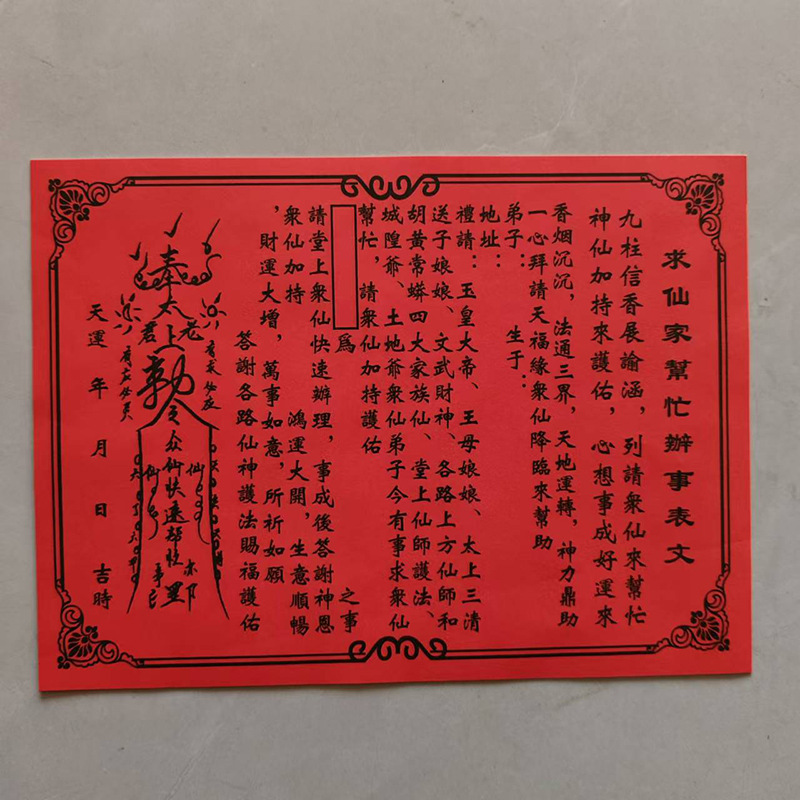 求仙家幫忙辦事表文
九柱信香展諭涵，列請衆仙來幫忙
神仙加持來護佑，心想事成好運來
香烟沉沉，法通三界，天地運轉，神力鼎助
一心拜請天福緣衆仙降臨來幫助
弟子： 生于：
地址：
禮請：玉皇大帝、王母娘娘、太上三清
送子娘娘、文武財神、各路上方仙師和
胡黃常蟒四大家族仙、堂上仙師護法、
城隍爺、土地爺衆仙弟子今有事求衆仙
幫忙，請衆仙加持護佑
爲 之事
請堂上衆仙快速辦理，事成後答謝神恩
衆仙加持 鴻運大開，生意順暢
，財運大增，萬事如意，所祈如願
答謝各路仙神護法賜福護佑
奉太上老君勅令
众仙快速
天運 年 月 日 吉時